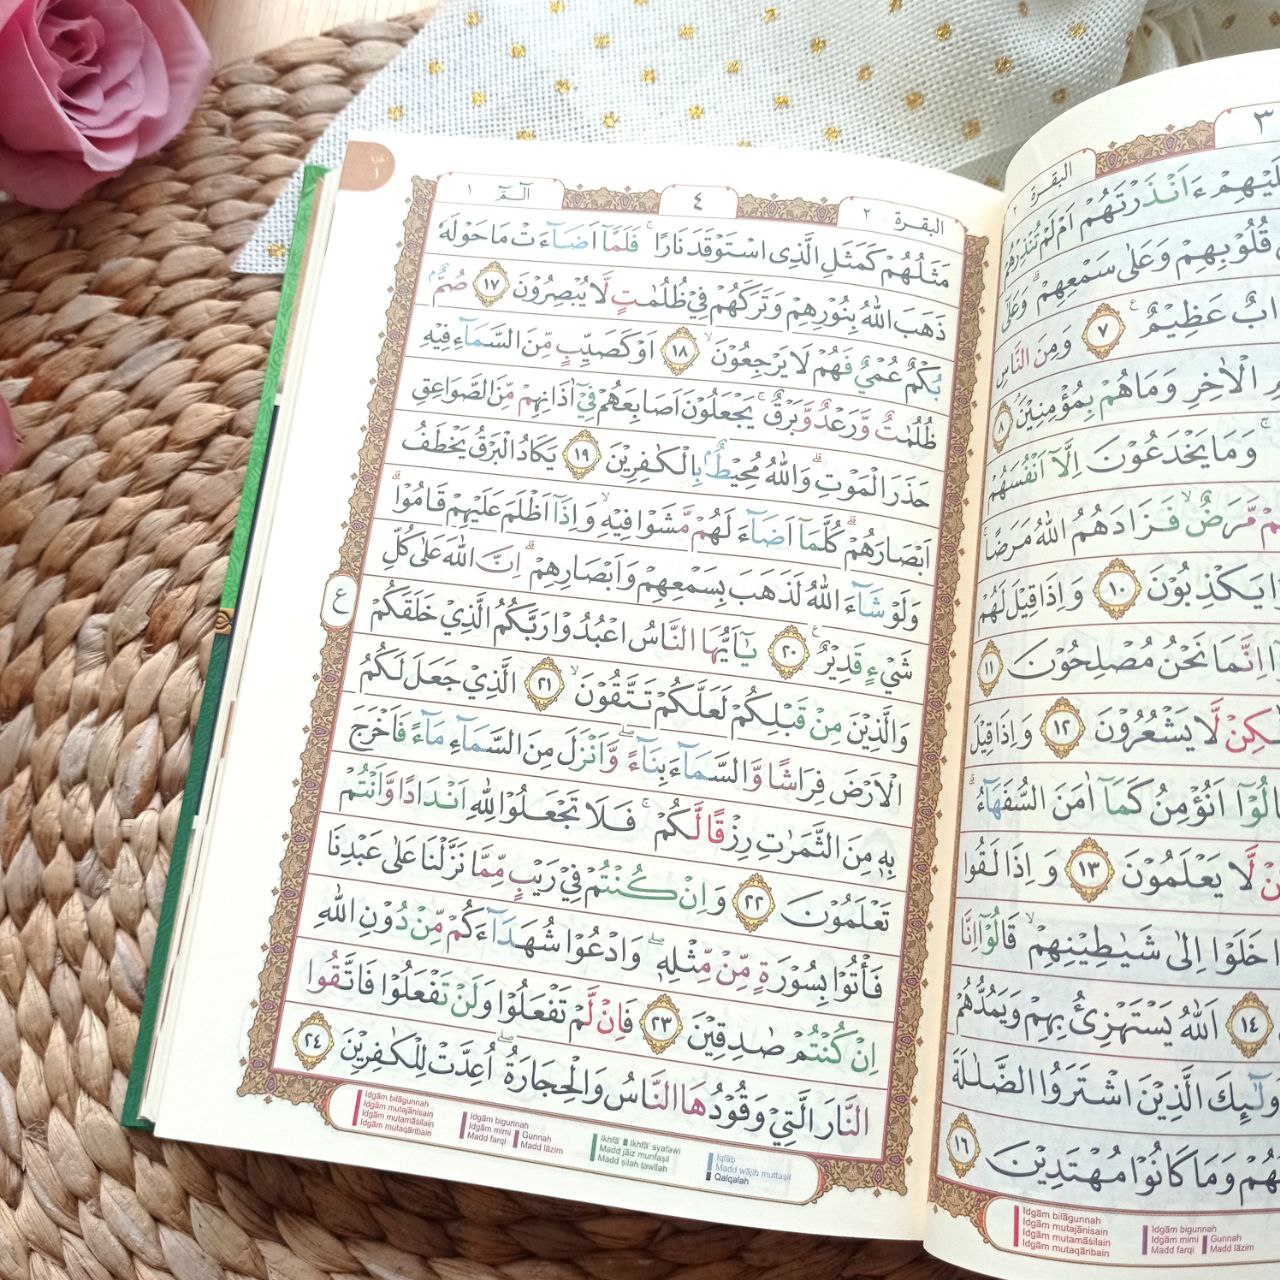 البقرة ٣
ءَاَنْذَرْتَهُمْ اَمْ لَمْ تُنْذِرْهُمْ
قُلُوْبِهِمْ وَعَلٰى سَمْعِهِمْ ۗ وَعَلٰٓى
عَظِيْمٌ ࣖ ٧ وَمِنَ النَّاسِ
الْاٰخِرِ وَمَا هُمْ بِمُؤْمِنِيْنَۘ ٨
وَمَا يَخْدَعُوْنَ اِلَّآ اَنْفُسَهُمْ
مَّرَضٌۙ فَزَادَهُمُ اللّٰهُ مَرَضًاۚ
يَكْذِبُوْنَ ١٠ وَاِذَا قِيْلَ لَهُمْ
اِنَّمَا نَحْنُ مُصْلِحُوْنَ ١١
لَّا يَشْعُرُوْنَ ١٢ وَاِذَا قِيْلَ
اَنُؤْمِنُ كَمَآ اٰمَنَ السُّفَهَاۤءُ ۗ
لَّا يَعْلَمُوْنَ ١٣ وَاِذَا لَقُوا
خَلَوْا اِلٰى شَيٰطِيْنِهِمْۙ قَالُوْٓا اِنَّا
١٤ اَللّٰهُ يَسْتَهْزِئُ بِهِمْ وَيَمُدُّهُمْ
الَّذِيْنَ اشْتَرَوُا الضَّلٰلَةَ
وَمَا كَانُوْا مُهْتَدِيْنَ ١٦
Idgām bilāgunnah
Idgām mutajānisain
Idgām mutamāṡilain
Idgām mutaqāribain
Idgām bigunnah
Idgām mimi
Madd farqi
Gunnah
Madd lāzim
البقرة ٢
٤
الۤمّۤ ١
مَثَلُهُمْ كَمَثَلِ الَّذِى اسْتَوْقَدَ نَارًاۚ فَلَمَّآ اَضَاۤءَتْ مَا حَوْلَهٗ
ذَهَبَ اللّٰهُ بِنُوْرِهِمْ وَتَرَكَهُمْ فِيْ ظُلُمٰتٍ لَّا يُبْصِرُوْنَ ١٧ صُمٌّ ۢ
بُكْمٌ عُمْيٌ فَهُمْ لَا يَرْجِعُوْنَۙ ١٨ اَوْ كَصَيِّبٍ مِّنَ السَّمَاۤءِ فِيْهِ
ظُلُمٰتٌ وَّرَعْدٌ وَّبَرْقٌۚ يَجْعَلُوْنَ اَصَابِعَهُمْ فِيْٓ اٰذَانِهِمْ مِّنَ الصَّوَاعِقِ
حَذَرَ الْمَوْتِۗ وَاللّٰهُ مُحِيْطٌۢ بِالْكٰفِرِيْنَ ١٩ يَكَادُ الْبَرْقُ يَخْطَفُ
اَبْصَارَهُمْ ۗ كُلَّمَآ اَضَاۤءَ لَهُمْ مَّشَوْا فِيْهِۙ وَاِذَآ اَظْلَمَ عَلَيْهِمْ قَامُوْا ۗ
وَلَوْ شَاۤءَ اللّٰهُ لَذَهَبَ بِسَمْعِهِمْ وَاَبْصَارِهِمْ ۗ اِنَّ اللّٰهَ عَلٰى كُلِّ
شَيْءٍ قَدِيْرٌ ࣖ ٢٠ يٰٓاَيُّهَا النَّاسُ اعْبُدُوْا رَبَّكُمُ الَّذِيْ خَلَقَكُمْ
ع
وَالَّذِيْنَ مِنْ قَبْلِكُمْ لَعَلَّكُمْ تَتَّقُوْنَۙ ٢١ الَّذِيْ جَعَلَ لَكُمُ
الْاَرْضَ فِرَاشًا وَّالسَّمَاۤءَ بِنَاۤءً ۖوَّاَنْزَلَ مِنَ السَّمَاۤءِ مَاۤءً فَاَخْرَجَ
بِهٖ مِنَ الثَّمَرٰتِ رِزْقًا لَّكُمْ ۚ فَلَا تَجْعَلُوْا لِلّٰهِ اَنْدَادًا وَّاَنْتُمْ
تَعْلَمُوْنَ ٢٢ وَاِنْ كُنْتُمْ فِيْ رَيْبٍ مِّمَّا نَزَّلْنَا عَلٰى عَبْدِنَا
فَأْتُوْا بِسُوْرَةٍ مِّنْ مِّثْلِهٖ ۖ وَادْعُوْا شُهَدَاۤءَكُمْ مِّنْ دُوْنِ اللّٰهِ
اِنْ كُنْتُمْ صٰدِقِيْنَ ٢٣ فَاِنْ لَّمْ تَفْعَلُوْا وَلَنْ تَفْعَلُوْا فَاتَّقُوا
النَّارَ الَّتِيْ وَقُوْدُهَا النَّاسُ وَالْحِجَارَةُ ۖ اُعِدَّتْ لِلْكٰفِرِيْنَ ٢٤
Idgām bilāgunnah
Idgām mutajānisain
Idgām mutamāṡilain
Idgām mutaqāribain
Idgām bigunnah
Idgām mimi
Madd farqi
Gunnah
Madd lāzim
Ikhfā' Ikhfā' syafawi
Madd jāiz munfaṣil
Madd ṣilah ṭawīlah
Iqlāb
Madd wājib muttaṣil
Qalqalah